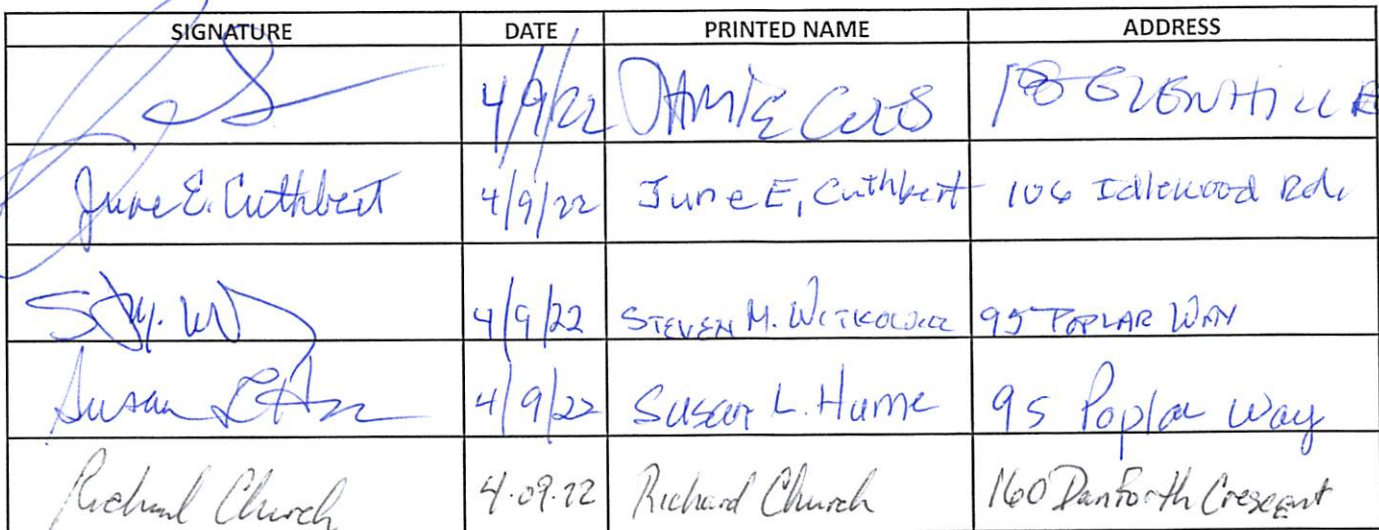 SIGNATURE DATE PRINTED NAME ADDRESS
4/9/22
June E. Cuthbert 4/9/22 June E, Cuthbert 106 Idlewood Rd.
4/9/22 STEVEN M. 95 POPLAR WAY
Susan L 4/9/22 Susan L. Hume 95 Poplar Way
Richard Church 4.09.22 Richard Church 160 Danforth Crescent